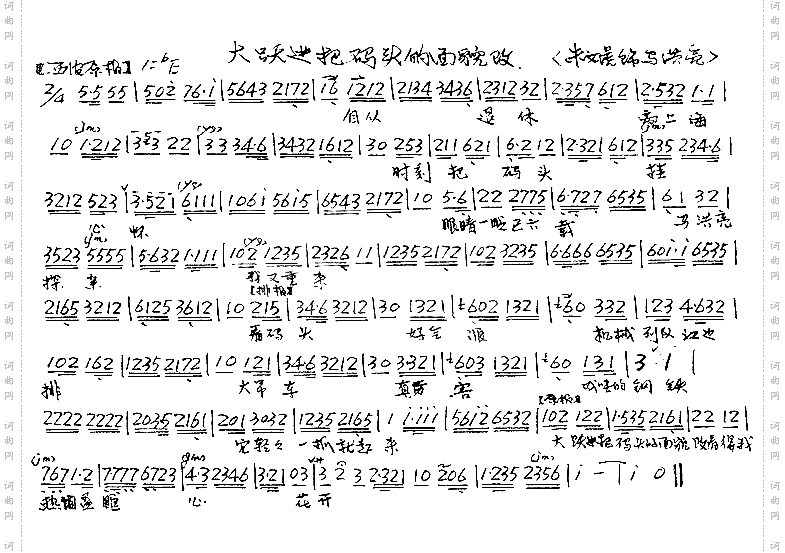 大跃进把码头的面貌改
【西皮原板】 1=♭E
2/4 5·5 55 | 502 76·i | 5643 2172 | 16 1212 | 2134 3436 | 2312 32 | 2·357 612 | 2·532 1·1 |
自从 退休 离上海
10 1·212 | 353 22 | 33 34·6 | 3432 1612 | 30 253 | 211 621 | 6·212 | 2·321 612 | 335 234·6 |
时刻把码头挂
3212 523 | 3·521 6111 | 1061 5615 | 6543 2172 | 10 5·6 | 22 2775 | 6·727 6535 | 61 32 |
心怀 眼睛一眨已六载 马洪亮
3523 5555 | 5·632 1·111 | 102 1235 | 2326 11 | 1235 2172 | 102 3235 | 6·666 6535 | 60i·i 6535 |
探亲 我又重来
2165 3212 | 6125 3612 | 10 215 | 34·6 3212 | 30 1321 | 602 1321 | 60 332 | 123 4·632 |
看码头 好气派 机械列队江边
102 162 | 1235 2172 | 10 121 | 34·6 3212 | 30 3·321 | 603 1321 | 60 131 | 3·i |
排 大吊车 真厉害 成吨的钢铁
2222 2222 | 2035 2161 | 201 3032 | 1235 2165 | 1 i·iii | 5612 6532 | 102 122 | 1·535 2161 | 22 12 |
它轻轻一抓就起来 大跃进把码头的面貌改看得我
7671·2 | 7777 6723 | 4·32346 | 3·2103 | 3 2 3 2·321 | 10 206 | 1·235 2356 | i － | i 0 ‖
热泪盈眶心花开
词曲网